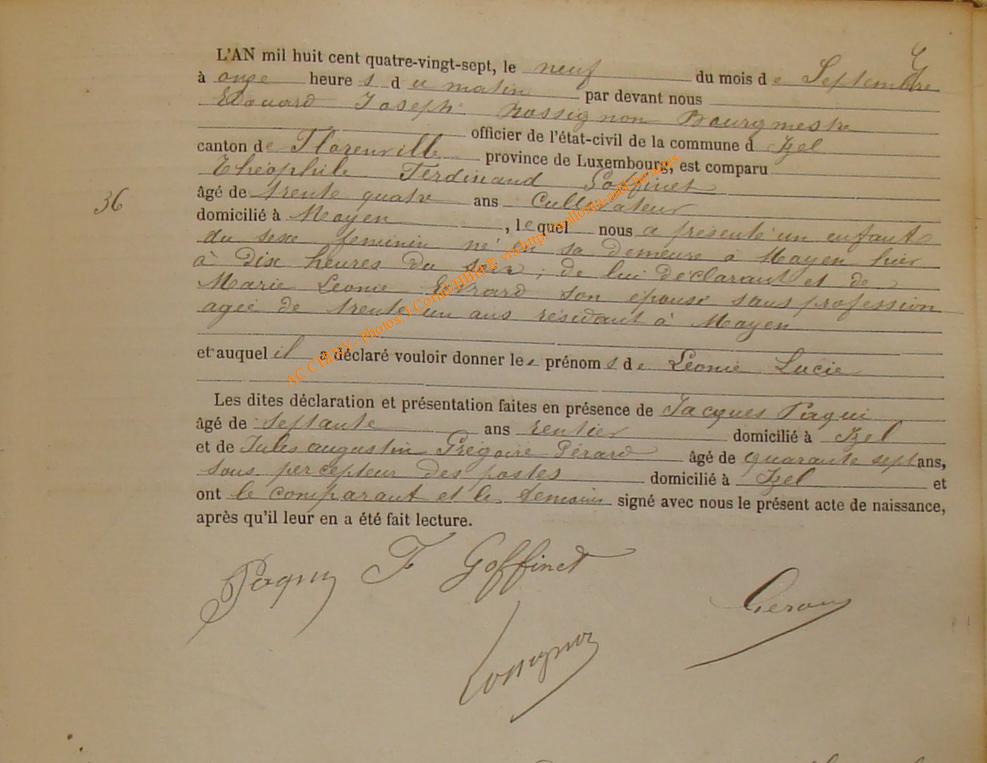 L'AN mil huit cent quatre-vingt-sept, le neuf du mois de Septembre
à onze heures du matin par devant nous
Edouard Joseph Rossignon Bourgmestre
officier de l'état-civil de la commune d Izel
canton de Florenville province de Luxembourg, est comparu
Théophile Ferdinand Goffinet
36
âgé de trente quatre ans Cultivateur
domicilié à Moyen, lequel nous a présenté un enfant
du sexe feminin né en sa demeure à Moyen hier
à dix heures du soir ; de lui déclarant et de
Marie Léonie son épouse sans profession
agée de trente un ans résidant à Moyen
et auquel il a déclaré vouloir donner les prénoms de Léonie Lucie
Les dites déclaration et présentation faites en présence de Jacques
âgé de septante ans rentier domicilié à Izel
et de Jules augustin Grégoire Gérard âgé de quarante sept ans,
sous percepteur des postes domicilié à Izel et
ont le comparant et les témoins signé avec nous le présent acte de naissance,
après qu'il leur en a été fait lecture.
F Goffinet
Gerard
Rossignon